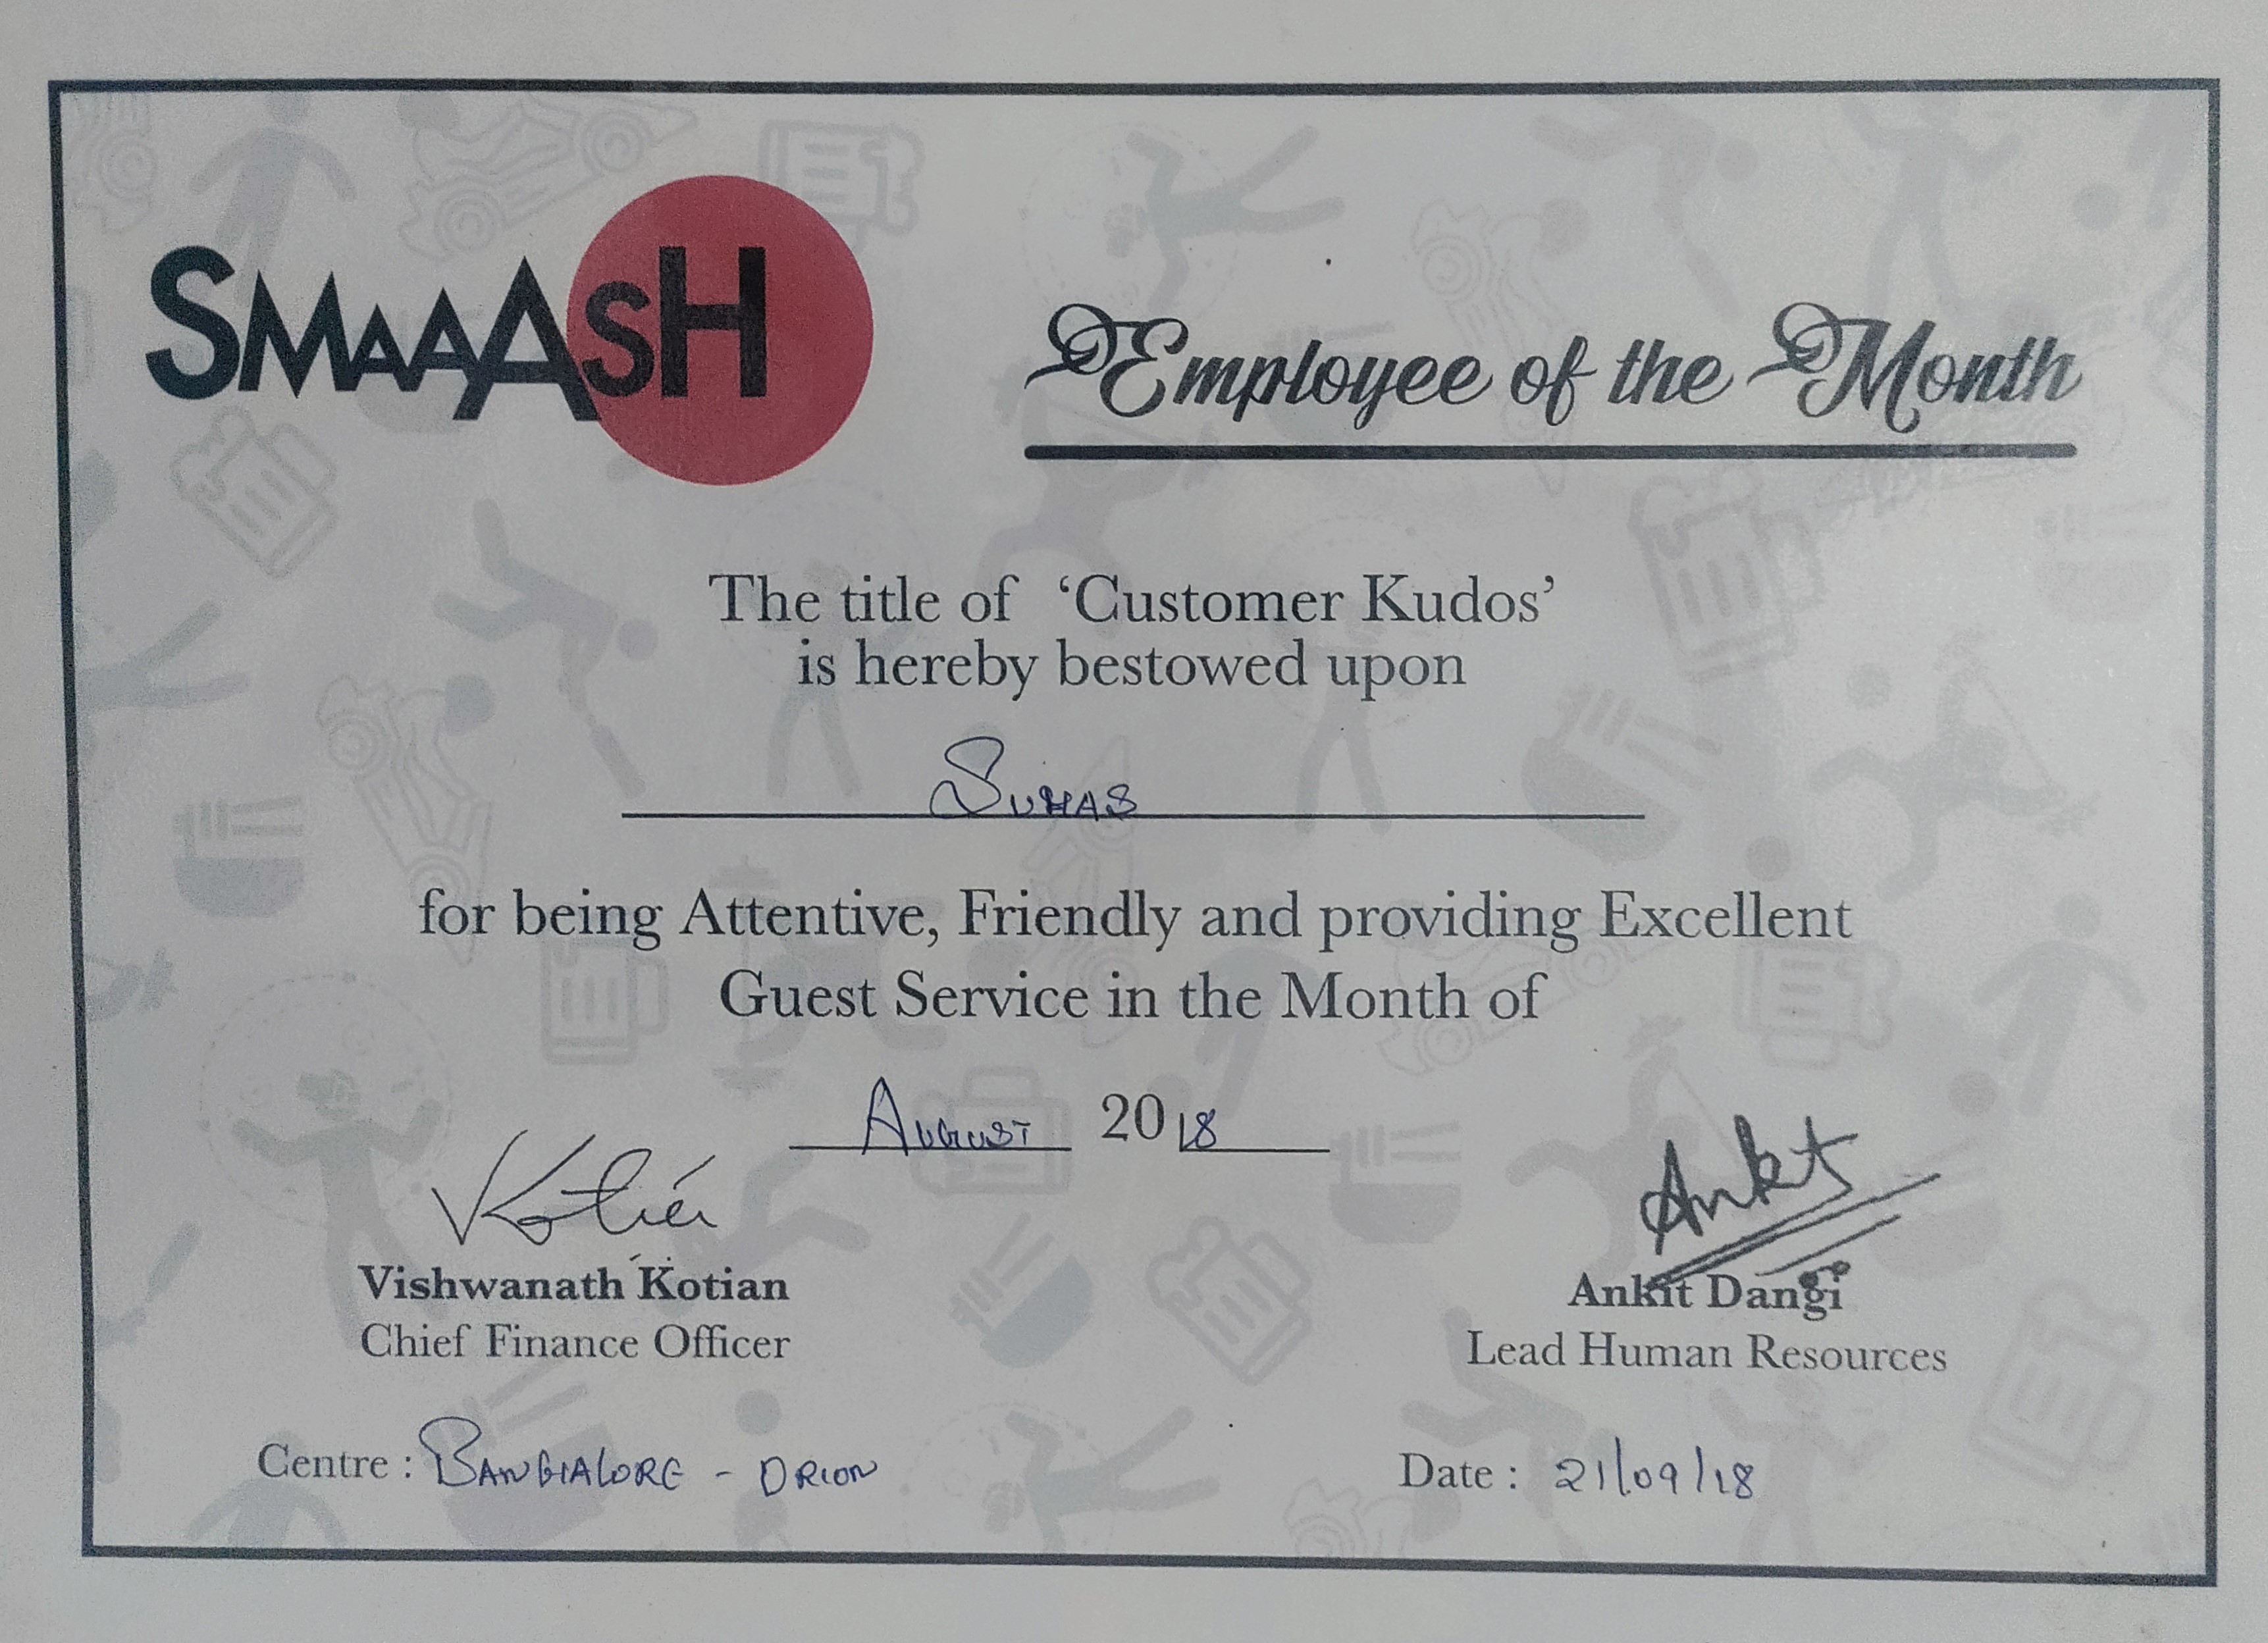 SMAAASH
Employee of the Month
The title of ‘Customer Kudos’
is hereby bestowed upon
SUHAS
for being Attentive, Friendly and providing Excellent
Guest Service in the Month of
AUGUST 2018
Kotian
Ankit
Vishwanath Kotian
Ankit Dangi
Chief Finance Officer
Lead Human Resources
Centre : BANGALORE - ORION
Date : 21/09/18